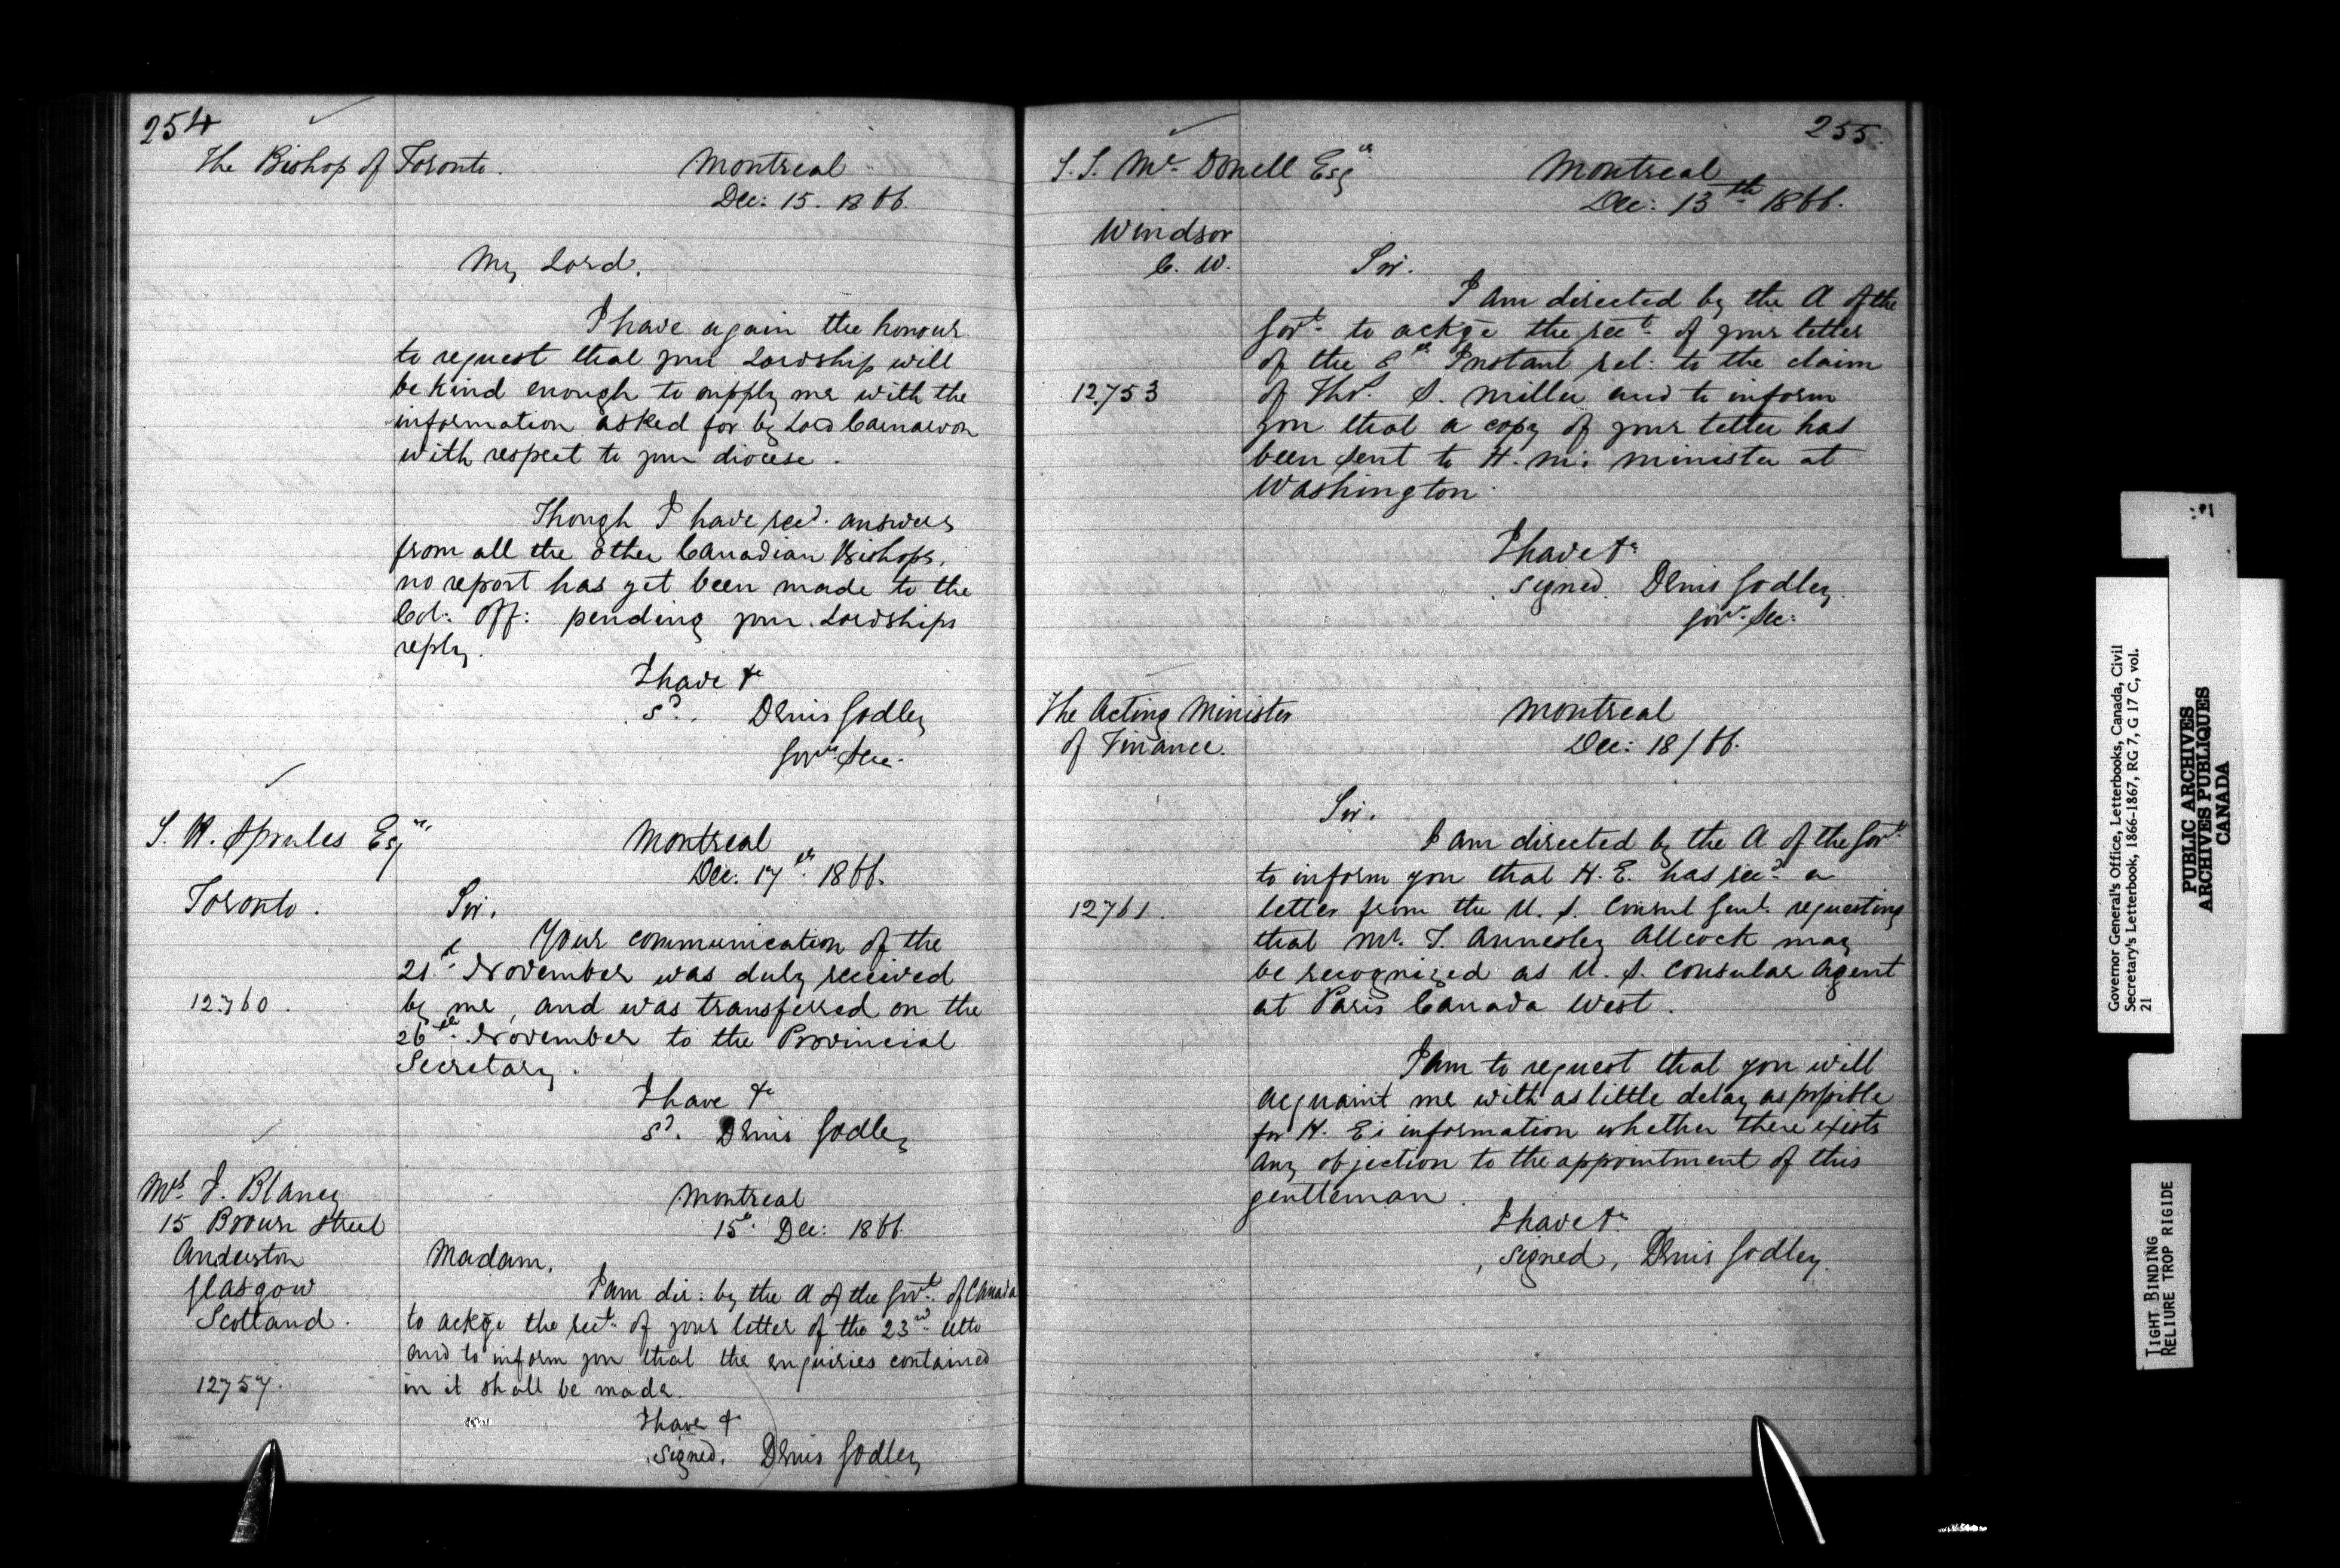 254
The Bishop of Toronto.
Montreal
Dec: 15. 1866.
My Lord,
I have again the honour
to request that your Lordship will
be kind enough to supply me with the
information asked for by Lord Carnarvon
with respect to your diocese.
Though I have recd. answers
from all the other Canadian Bishops,
no report has yet been made to the
Col: Off: pending your Lordships
reply.
I have &c
sd. Denis Godley
Govr. Sec.
Esqre,
Toronto.
12760.
Montreal
Dec: 17th. 1866.
Sir,
Your communication of the
21st. November was duly received
by me, and was transferred on the
26th. November to the Provincial
Secretary.
I have &c
sd. Denis Godley
Mrs. J. Blaney
15 Brown Street
Anderston
Glasgow
Scotland.
12757.
Montreal
15th. Dec: 1866.
Madam,
I am dir: by the A of the Govt. of Canada
to ackge the rect. of your letter of the 23rd. ulto
and to inform you that the enquiries contained
in it shall be made.
I have &
signed, Denis Godley
255.
S. S. Mc. Donell Esqre
Windsor
C. W.
12753
Montreal
Dec: 13th. 1866.
Sir.
I am directed by the A of the
Govt. to ackge the rect. of your letter
of the 8th Instant rel: to the claim
of Thos. S. Miller and to inform
you that a copy of your letter has
been sent to H. M's Minister at
Washington.
I have &c
signed. Denis Godley.
Govr. Sec:
The Acting Minister
of Finance.
12761.
Montreal
Dec: 18/66.
Sir.
I am directed by the A of the Govt.
to inform you that H. E. has recd. a
letter from the U. S. Consul Genl. requesting
that Mr. T. Annesley Allcock may
be recognized as U. S. Consular Agent
at Paris Canada West.
I am to request that you will
acquaint me with as little delay as possible
for H. E's information whether there exists
any objection to the appointment of this
gentleman.
I have &c
signed, Denis Godley.
Governor General's Office, Letterbooks, Canada, Civil
Secretary's Letterbook, 1866-1867, RG 7, G 17 C, vol.
21
PUBLIC ARCHIVES
ARCHIVES PUBLIQUES
CANADA
TIGHT BINDING
RELIURE TROP RIGIDE